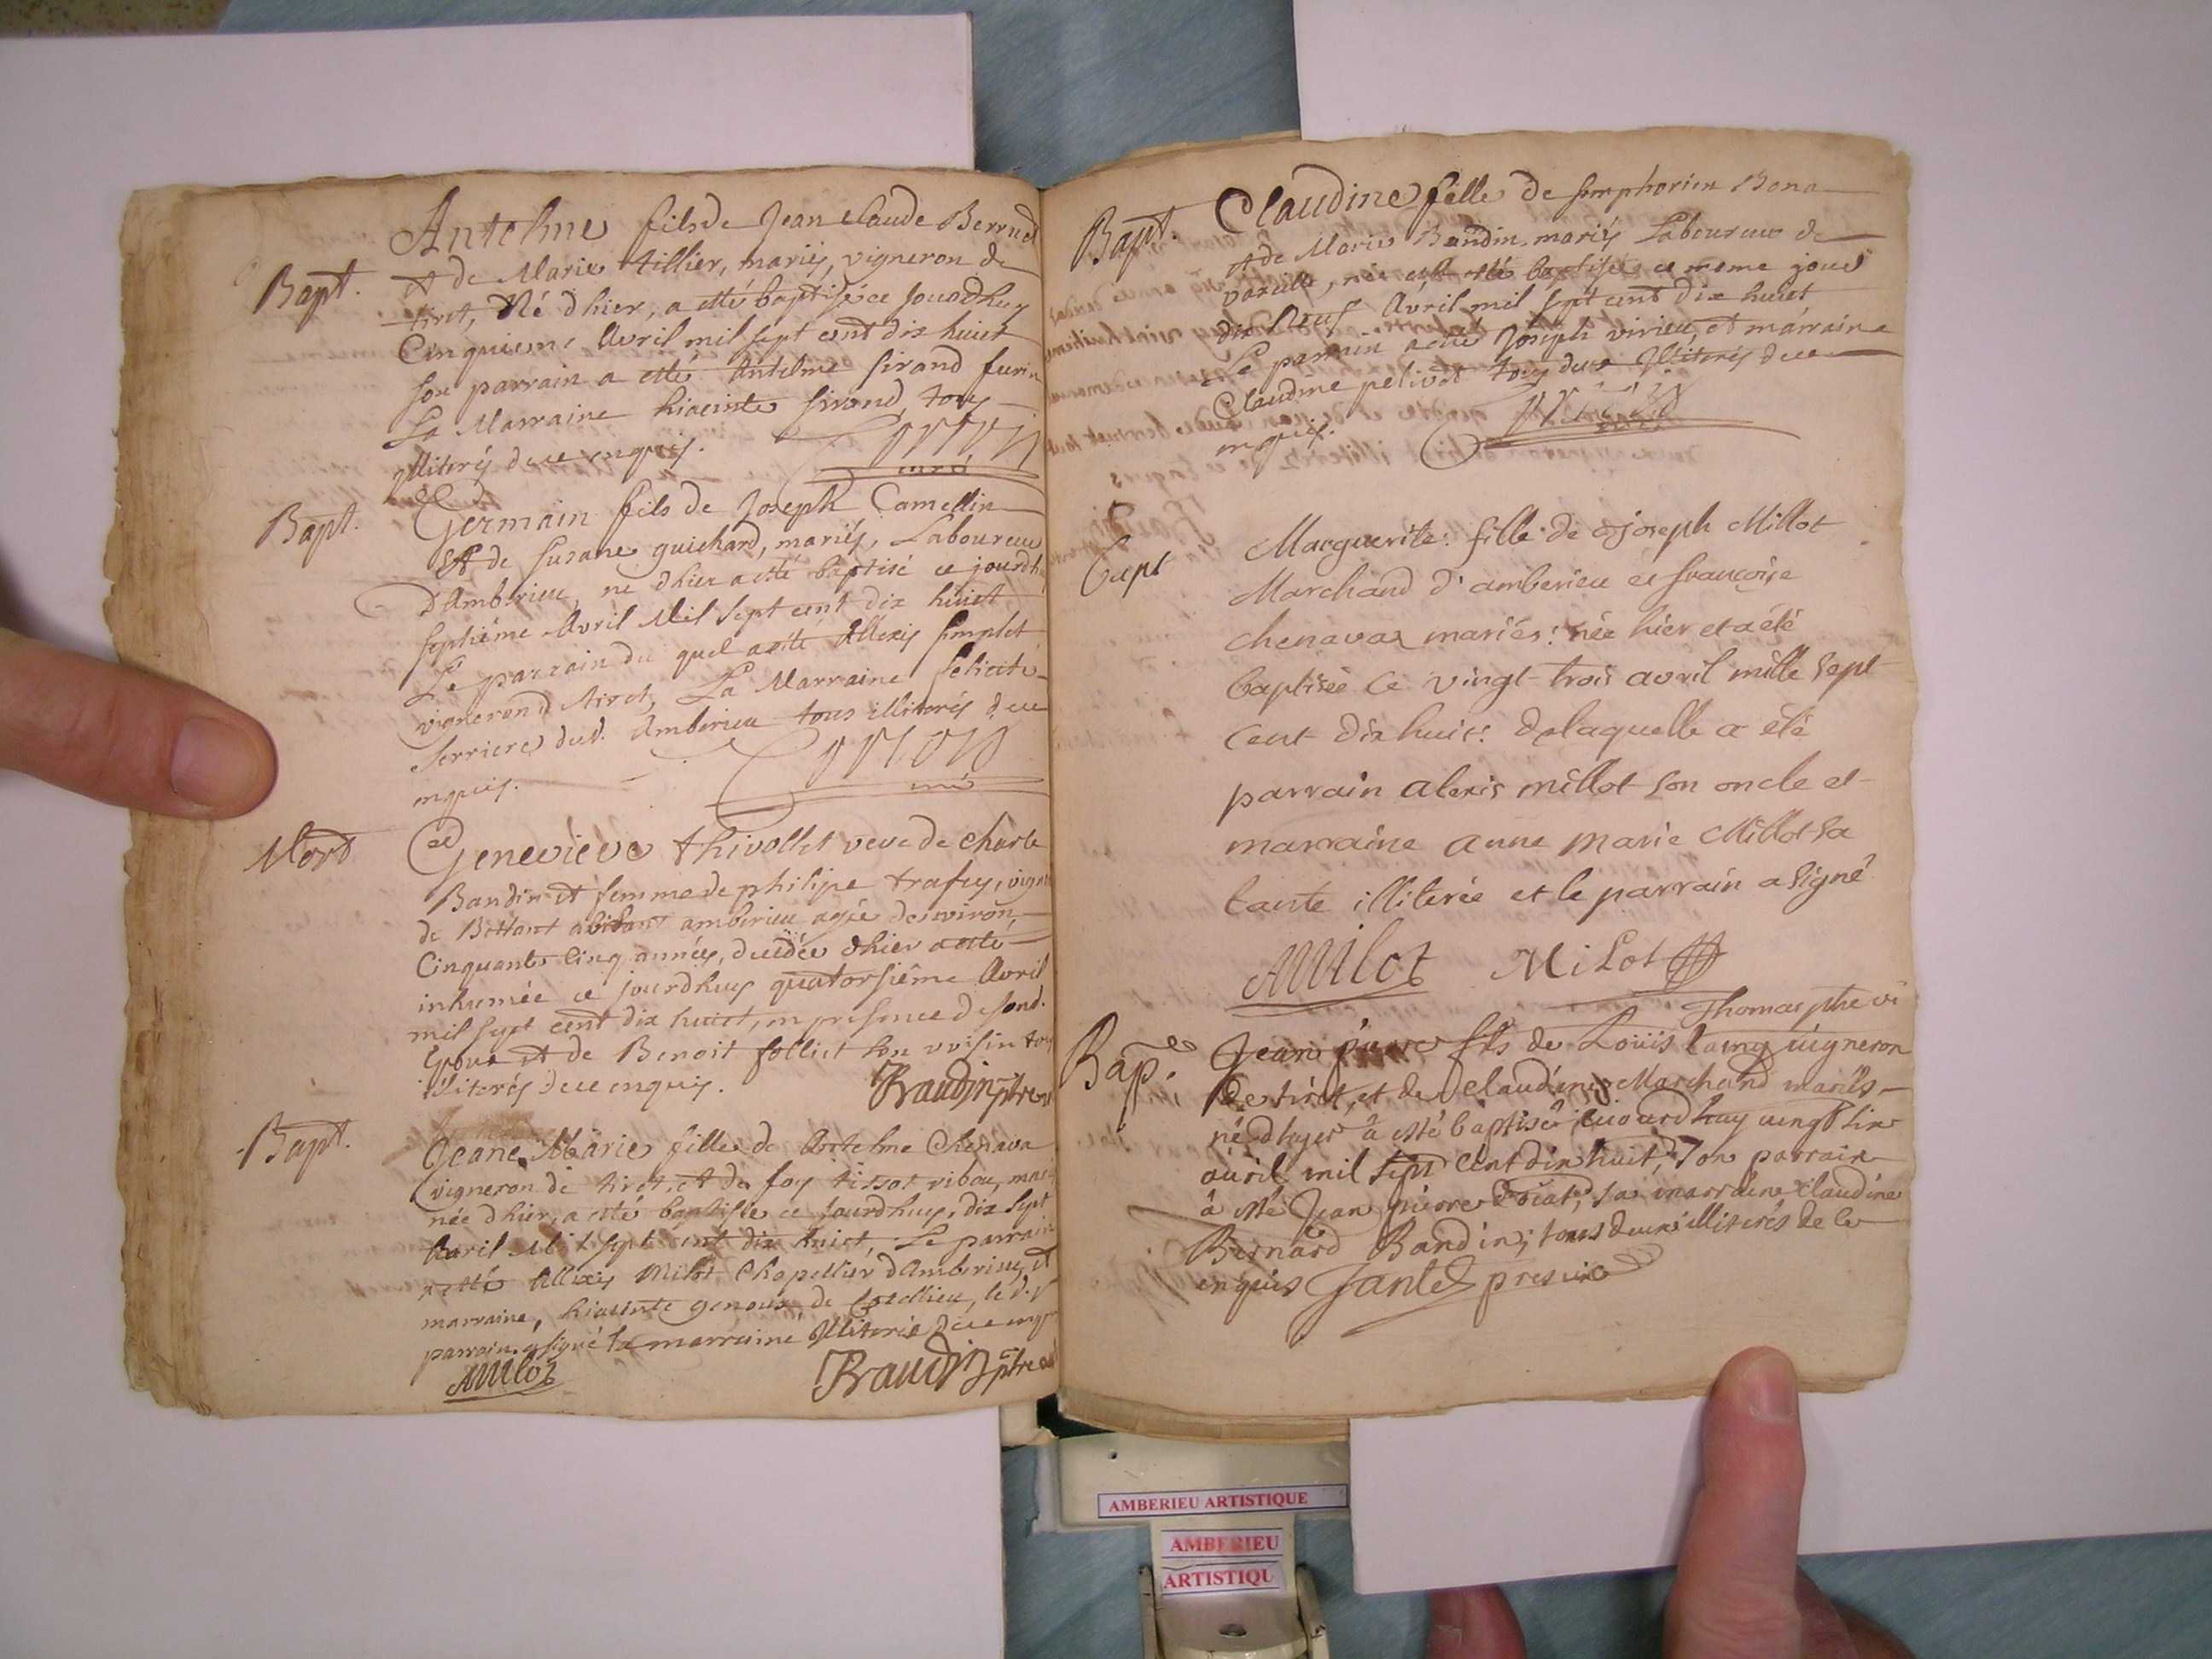 Bapt.
Antelme fils de Jean Claude Berrud
et de Marie tillier, mariés, vigneron de
tiret, Né dhier, a esté baptisé ce Jourdhuy
Cinquieme Avril mil sept cent dix huict
son parrain a esté Antelme sirand furin
La Marraine hiacinte sirand, tous
illiterés de ce enquis.
curé
Bapt.
Germain fils de Joseph Camellin
Et de susane guichard, mariés, Laboureur
d'Amberieu, né dhier a esté baptisé ce jourdh
septiéme Avril Mil Sept cent dix huict
Le parrain du quel a esté Allexis simplet
vigneron d tiret, La Marraine felicité
serriere dud. Amberieu tous illiterés de ce
enquis.
curé
Mort
Genevieve thivollet veve de Charle
Bandin et femme de philipe trafey, vigne
de Bettant abitant amberieu agée denviron
Cinquante Cinq années, decedée dhier a esté
inhumée ce jourdhuy quatorsiéme Avril
mil sept cent dix huict, en presence de sond.
Epoux et de Benoit folliet son voisin tous
illiterés de ce enquis.
Baudin ptre
Bapt.
Jeane Marie fille de Antelme Chenava
vigneron de tiret, et de foy tissot ribou, mar
née dhier, a esté baptisée ce jourdhuy, dix sept
Avril Mil sept cent dix huict, Le parrain
a esté Allexis Milot Chapellier d'Amberieu, et
marraine, hiacinte genoux de
parrain a signé la marraine illiterée de ce enq
AMilot
Baudin ptre
Bapt.
Claudine fille de simphorien Bona
et de Marie Bandin mariés Laboureur de
vareille, née et a esté baptisée ce meme jour
dix Neuf Avril mil sept cent dix huict
Le parrain a esté Joseph virieu, et marraine
Claudine pelivet tous deux illiterés de ce
enquis.
Bapt
Marguerite fille de joseph Millot
Marchand d'amberieu et françoise
chenavaz mariés: née hier et a été
baptisée ce vingt-trois avril mille sept
cent dix huit: de laquelle a été
parrain alexis millot son oncle et
marraine anne marie Millot sa
tante illiterée et le parrain a signé
AMilot MiLot
Thomas ptre vi
Bap.
Jean pierre fils de Loüis lamy uigneron
de tirêt, et de Claudine Marchand mariés
né dhyer à esté baptisé aujourdhuy uingt six
auril mil sept cent dix huit, son parrain
à esté Jean pierre sa marraine Claudine
Bernard Bandin; tous deux illiterés de ce
enquis